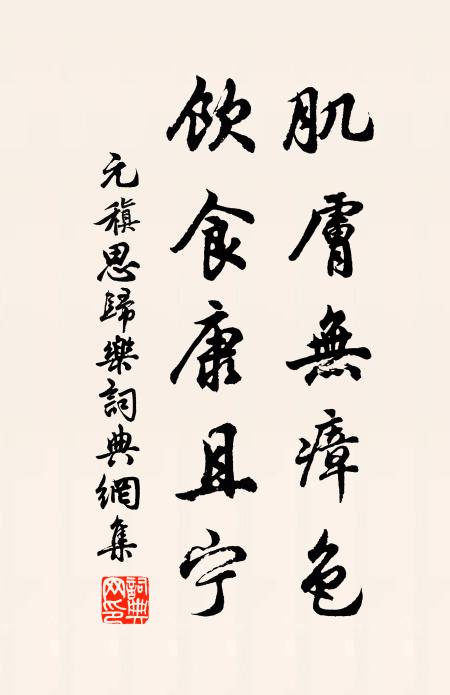 肌膚無瘴色
飲食康且宁
元稹思歸樂詞典網集
詞典网印